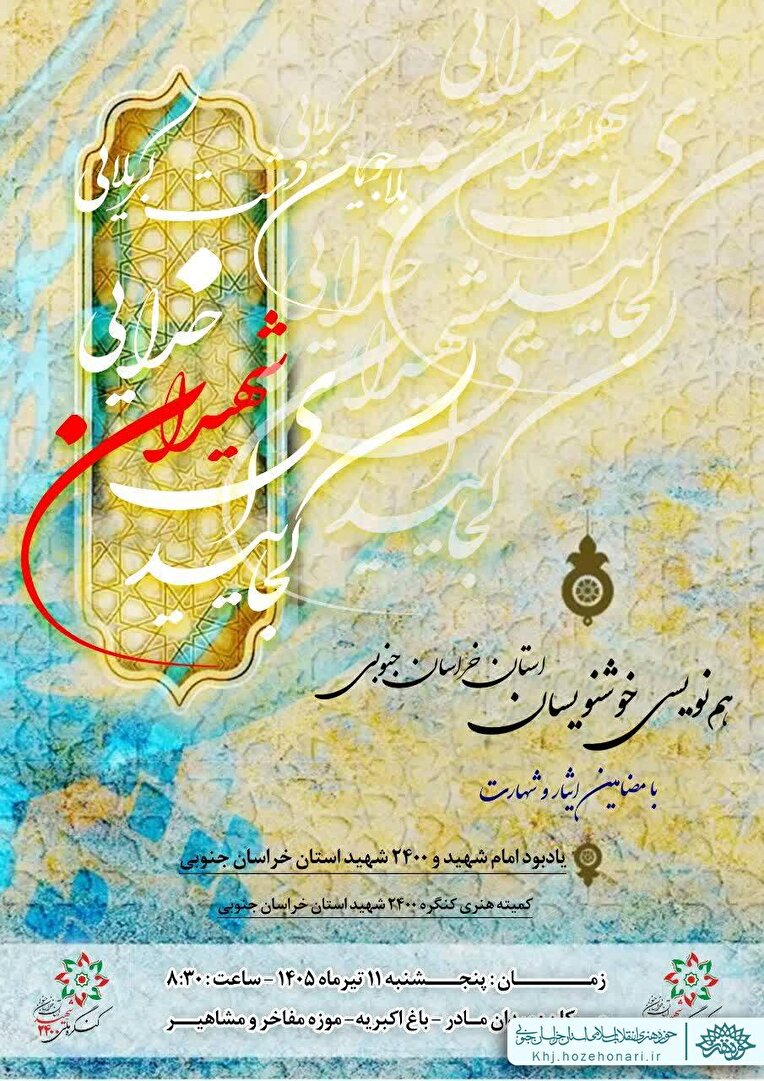 کجایید ای شهیدان خدایی
بلاجویان دشت کربلایی
کجایید ای شهیدان خدایی
کجایید ای شهیدان خدایی
هم نویسی خوشنویسان
استان خراسان جنوبی
با مضامین ایثار و شهادت
یادبود امام شهید و ۲۴۰۰ شهید استان خراسان جنوبی
کمیته هنری کنگره ۲۴۰۰ شهید استان خراسان جنوبی
زمـــان : پنجـــشنبه ۱۱ تیرماه ۱۴۰۵ - ساعت : ۸:۳۰
مادر - باغ اکبریه - موزه مفاخر و مشاهیر
کنگره ملی
۲۴۰۰
حوزه هنری انقلاب اسلامی استان خراسان جنوبی
Khj.hozehonari.ir